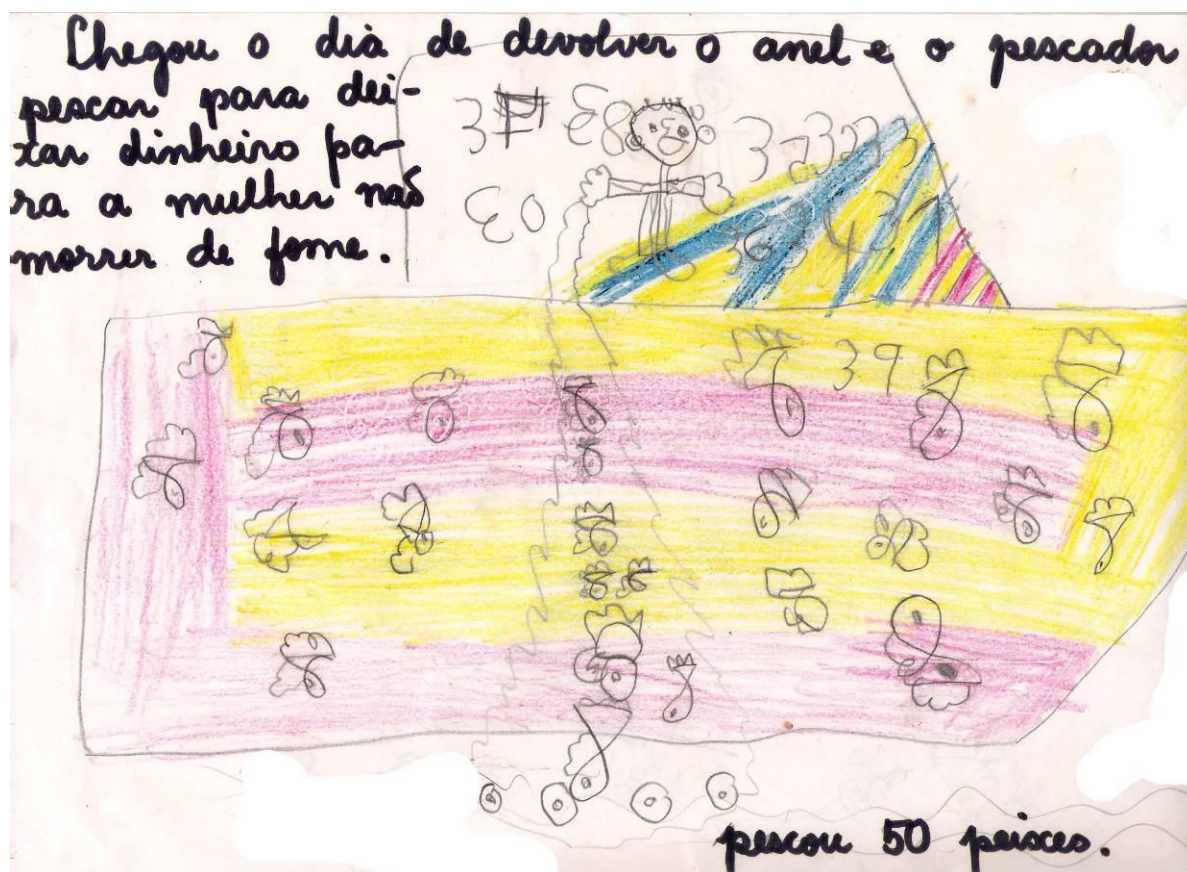 Chegou o dia de devolver o anel e o pescador
pescar para dei-
xar dinheiro pa-
ra a mulher não
morrer de fome.
37
38
37
30
39
pescou 50 peixes.